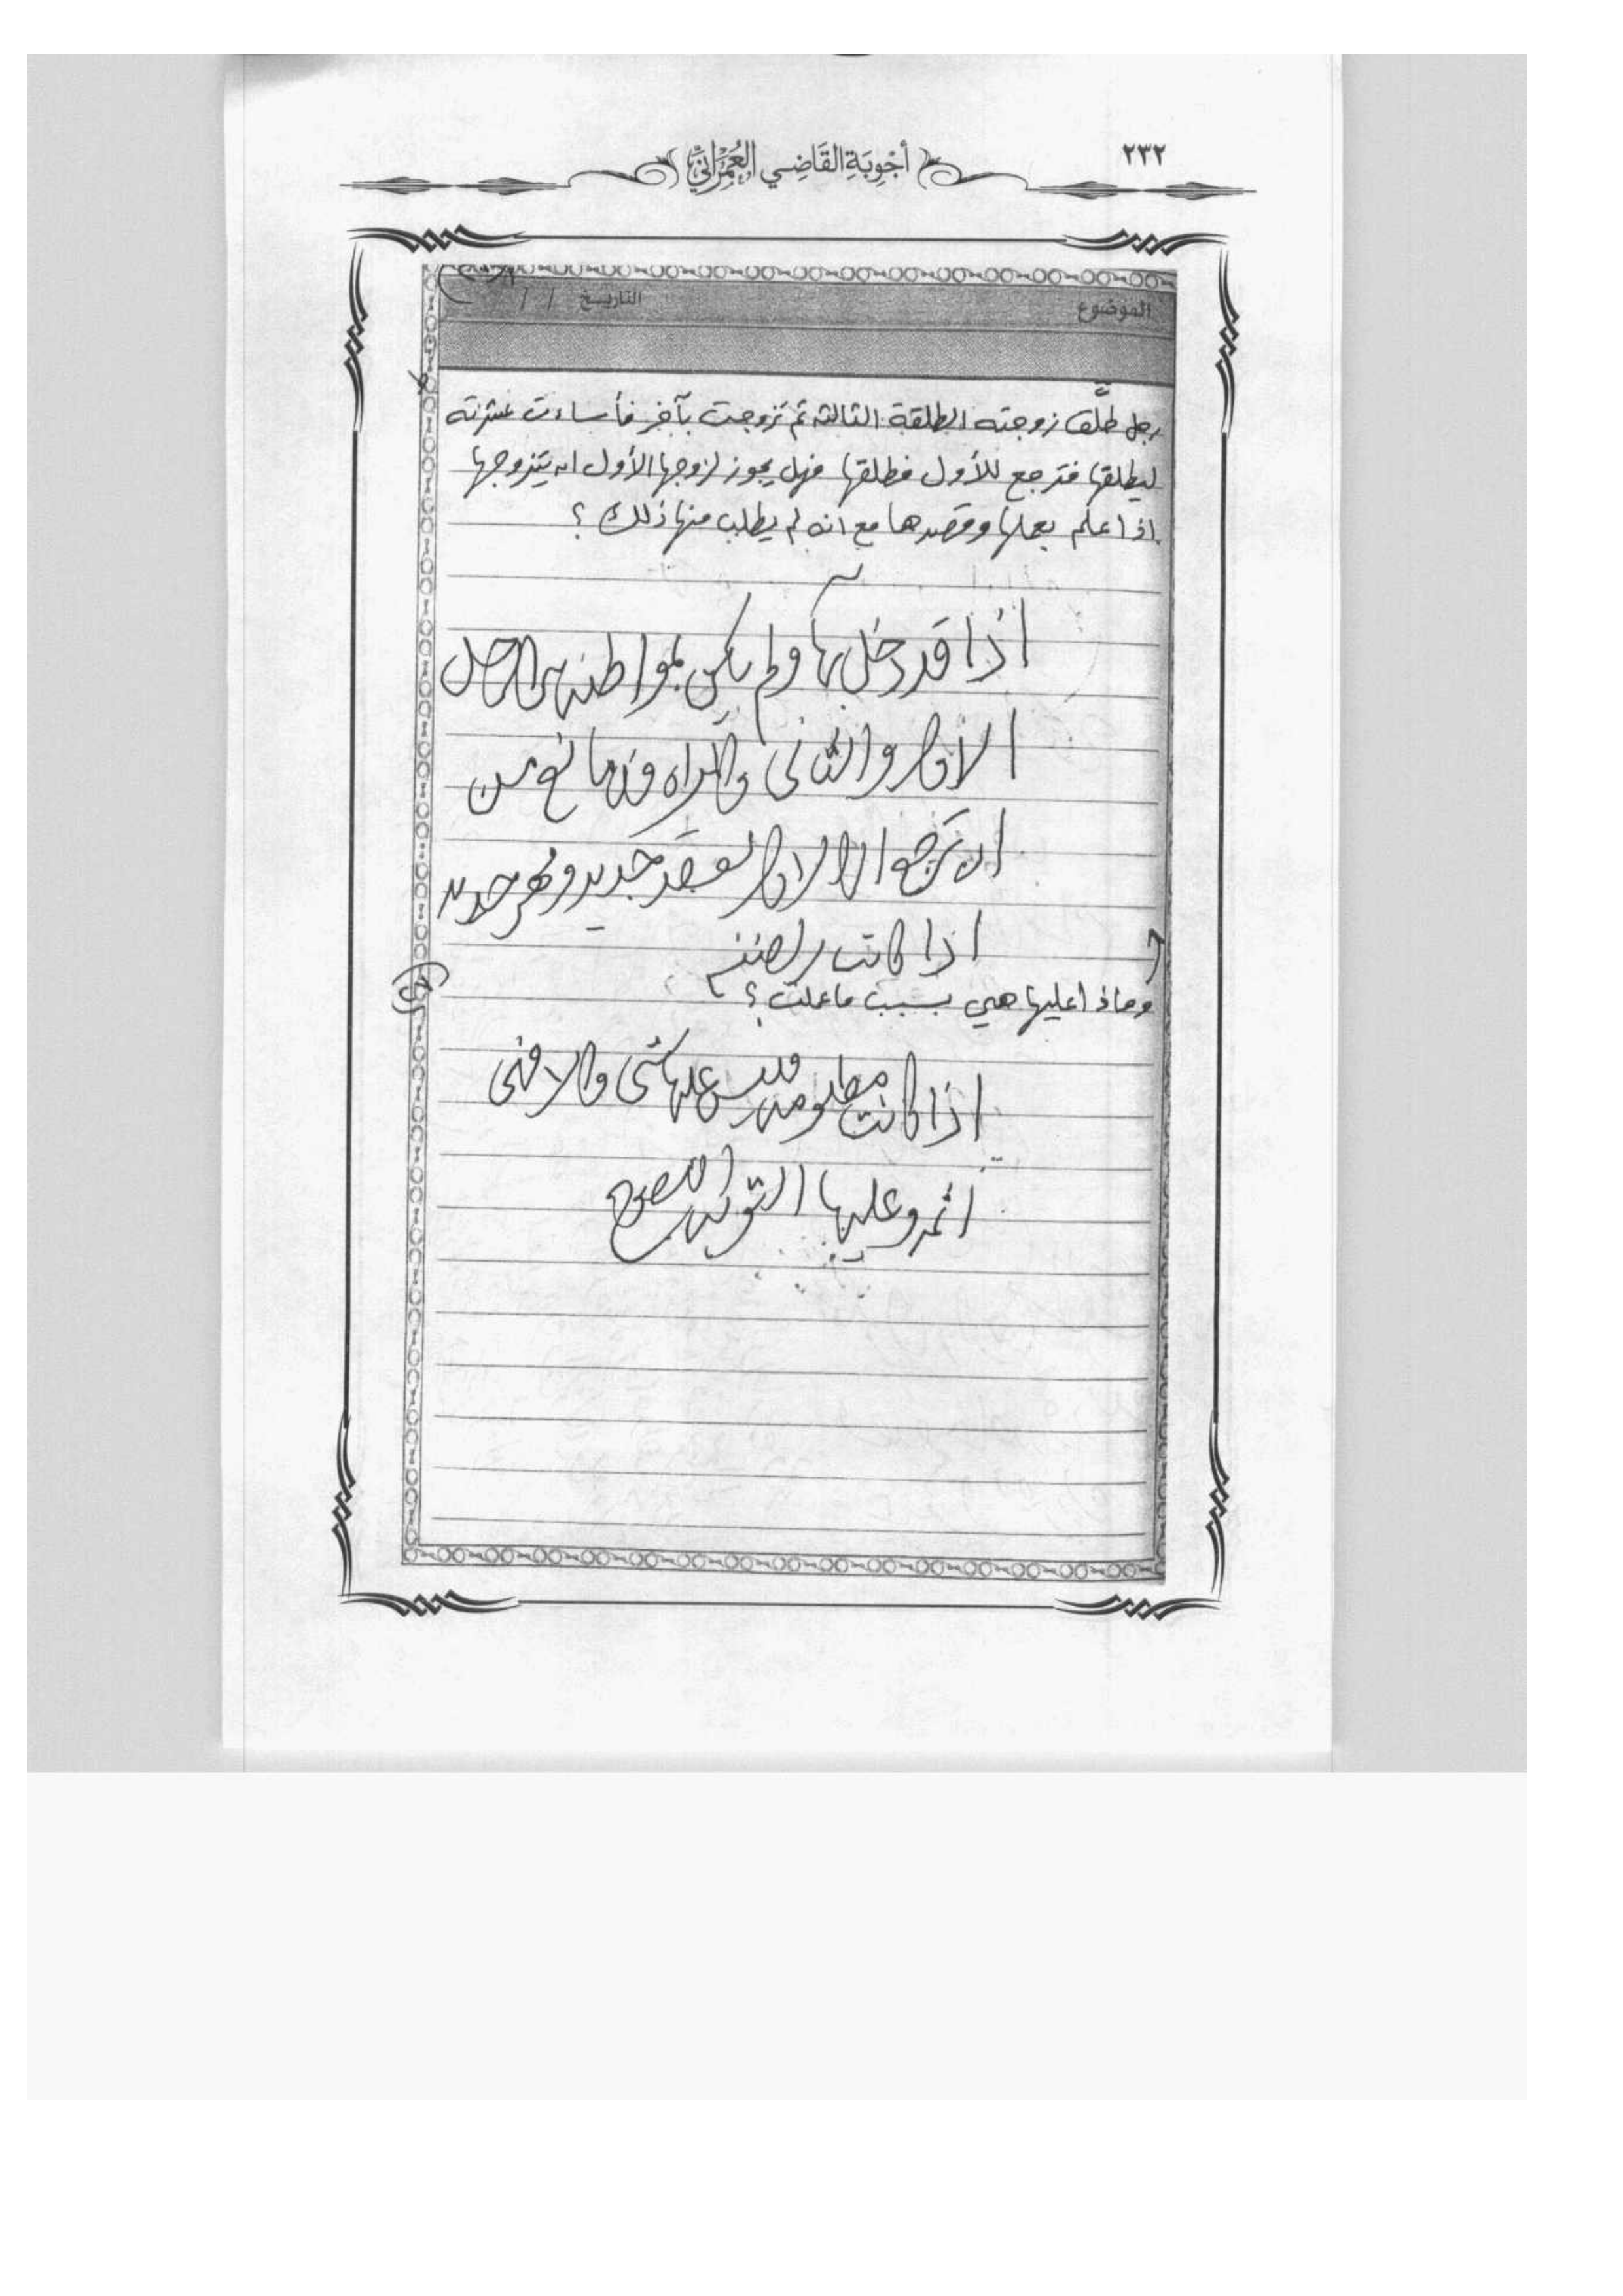 ٢٣٢
أَجْوِبَةِ القَاضِي العُمْرَانِيِّ
الموضوع
التاريخ / /
رجل طلَّق زوجته الطلقة الثالثة ثم تزوجت بآخر فأساءت عشرته
ليطلقها فترجع للأول فطلقها فهل يجوز لزوجها الأول ان يتزوجها
اذا علم بعملها وقصدها مع انه لم يطلب منها ذلك ؟
اذا قد دخل بها ولم يكن بمواطئه من الرجل
الاول والثاني والمراه فلا مانع من
ان ترجع الى الاول بعقد جديد ومهر جديد
اذا كانت راضيه
وماذا عليها هي بسبب ما عملت ؟
اذا كانت مظلومه فليس عليها شي والا فهي
اثمه وعليها التوبه النصوح